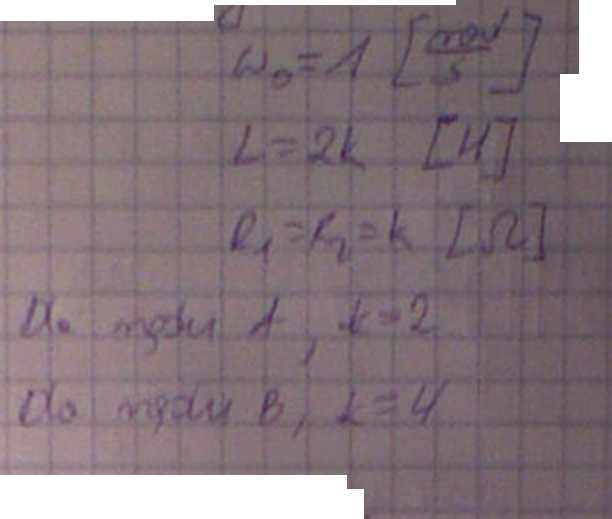 ω₀ = 1 [rad/s]
L = 2k [H]
R₁ = R₂ = k [Ω]
Do rzędu A, k = 2
Do rzędu B, k = 4